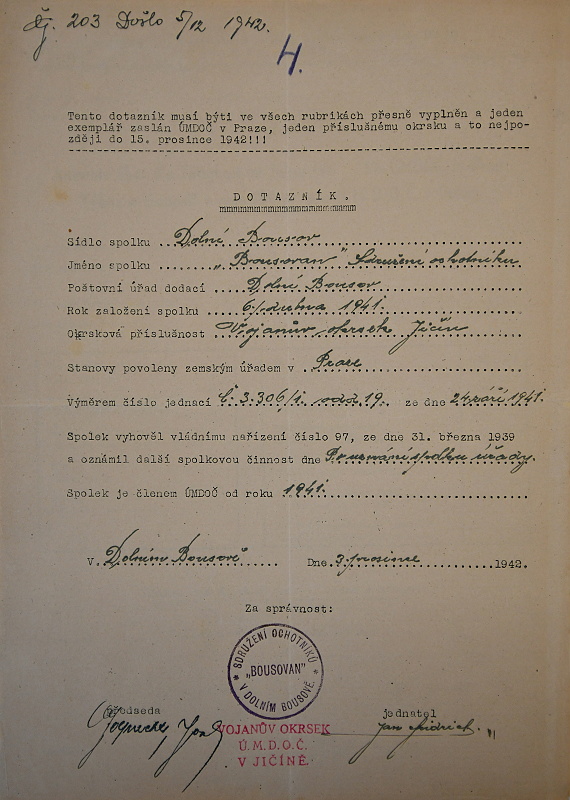 Čj. 203 Došlo 5/12 1942.
4.
Tento dotazník musí býti ve všech rubrikách přesně vyplněn a jeden
exemplář zaslán ÚMDOČ v Praze, jeden příslušnému okrsku a to nejpo-
zději do 15. prosince 1942!!!
DOTAZNÍK.
Sídlo spolku .. Dolní Bousov
Jméno spolku ...... „Bousovan" Sdružení ochotníku
Poštovní úřad dodací .. Dolní Bousov
Rok založení spolku .. 6/dubna 1941.
Okrsková příslušnost Vojanův okrsek Jičín
Stanovy povoleny zemským úřadem v . Praze
Výměrem číslo jednací č. 3.306/1. odd 19. ze dne 24 září 1941.
Spolek vyhověl vládnímu nařízení číslo 97, ze dne 31. března 1939
a oznámil další spolkovou činnost dne Po uznání spolku úřady.
Spolek je členem ÚMDOČ od roku 1941.
V. Dolním Bousově Dne. 3 prosince 1942.
Za správnost:
SDRUŽENÍ OCHOTNÍKŮ
"BOUSOVAN"
V DOLNÍM BOUSOVĚ.
předseda jednatel
Jan
VOJANŮV OKRSEK
Ú.M.D.O.Č.
V JIČÍNĚ.